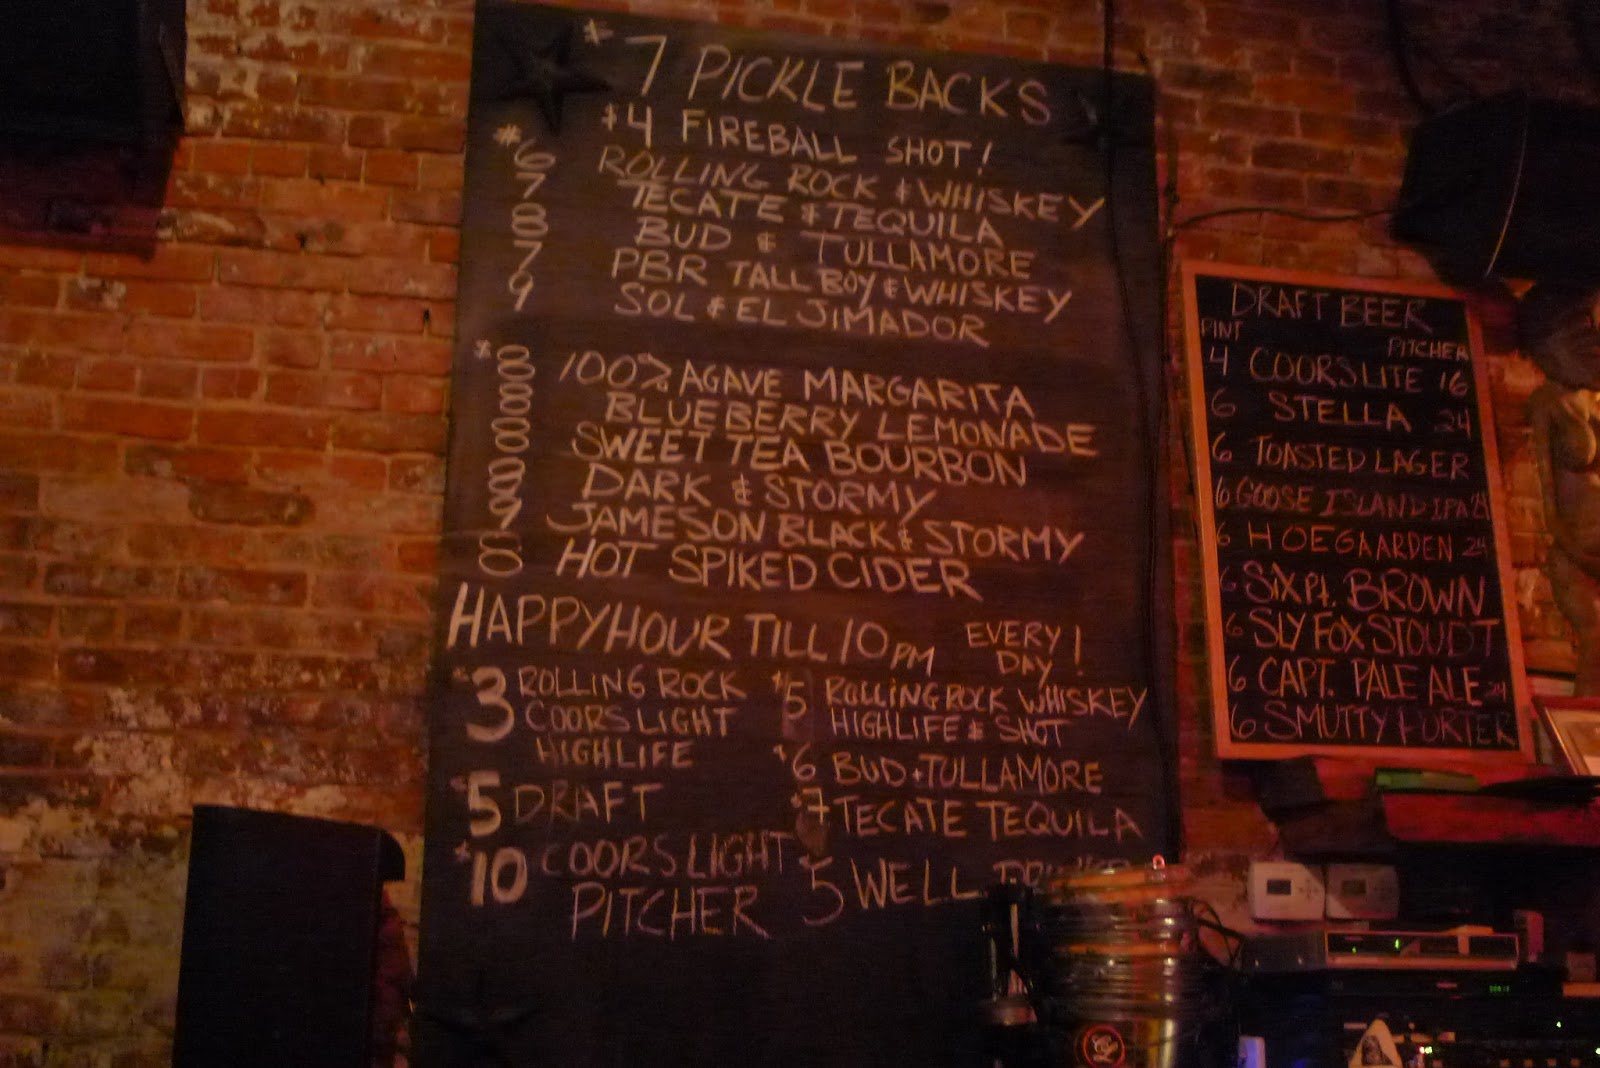 $7 PICKLE BACKS
$4 FIREBALL SHOT!
$6 ROLLING ROCK & WHISKEY
7 TECATE & TEQUILA
8 BUD & TULLAMORE
7 PBR TALL BOY & WHISKEY
9 SOL & EL JIMADOR
$8 100% AGAVE MARGARITA
8 BLUEBERRY LEMONADE
8 SWEET TEA BOURBON
8 DARK & STORMY
9 JAMESON BLACK & STORMY
8 HOT SPIKED CIDER
HAPPY HOUR TILL 10 PM EVERY DAY!
$3 ROLLING ROCK
COORS LIGHT
HIGHLIFE
$5 DRAFT
$10 COORS LIGHT
PITCHER
$5 ROLLING ROCK WHISKEY
HIGHLIFE & SHOT
$6 BUD + TULLAMORE
$7 TECATE TEQUILA
5 WELL
DRAFT BEER
PINT PITCHER
4 COORS LITE 16
6 STELLA 24
6 TOASTED LAGER
6 GOOSE ISLAND IPA 24
6 HOEGAARDEN 24
6 SIXPT. BROWN
6 SLY FOX STOUDT
6 CAPT. PALE ALE 24
6 SMUTTY PORTER